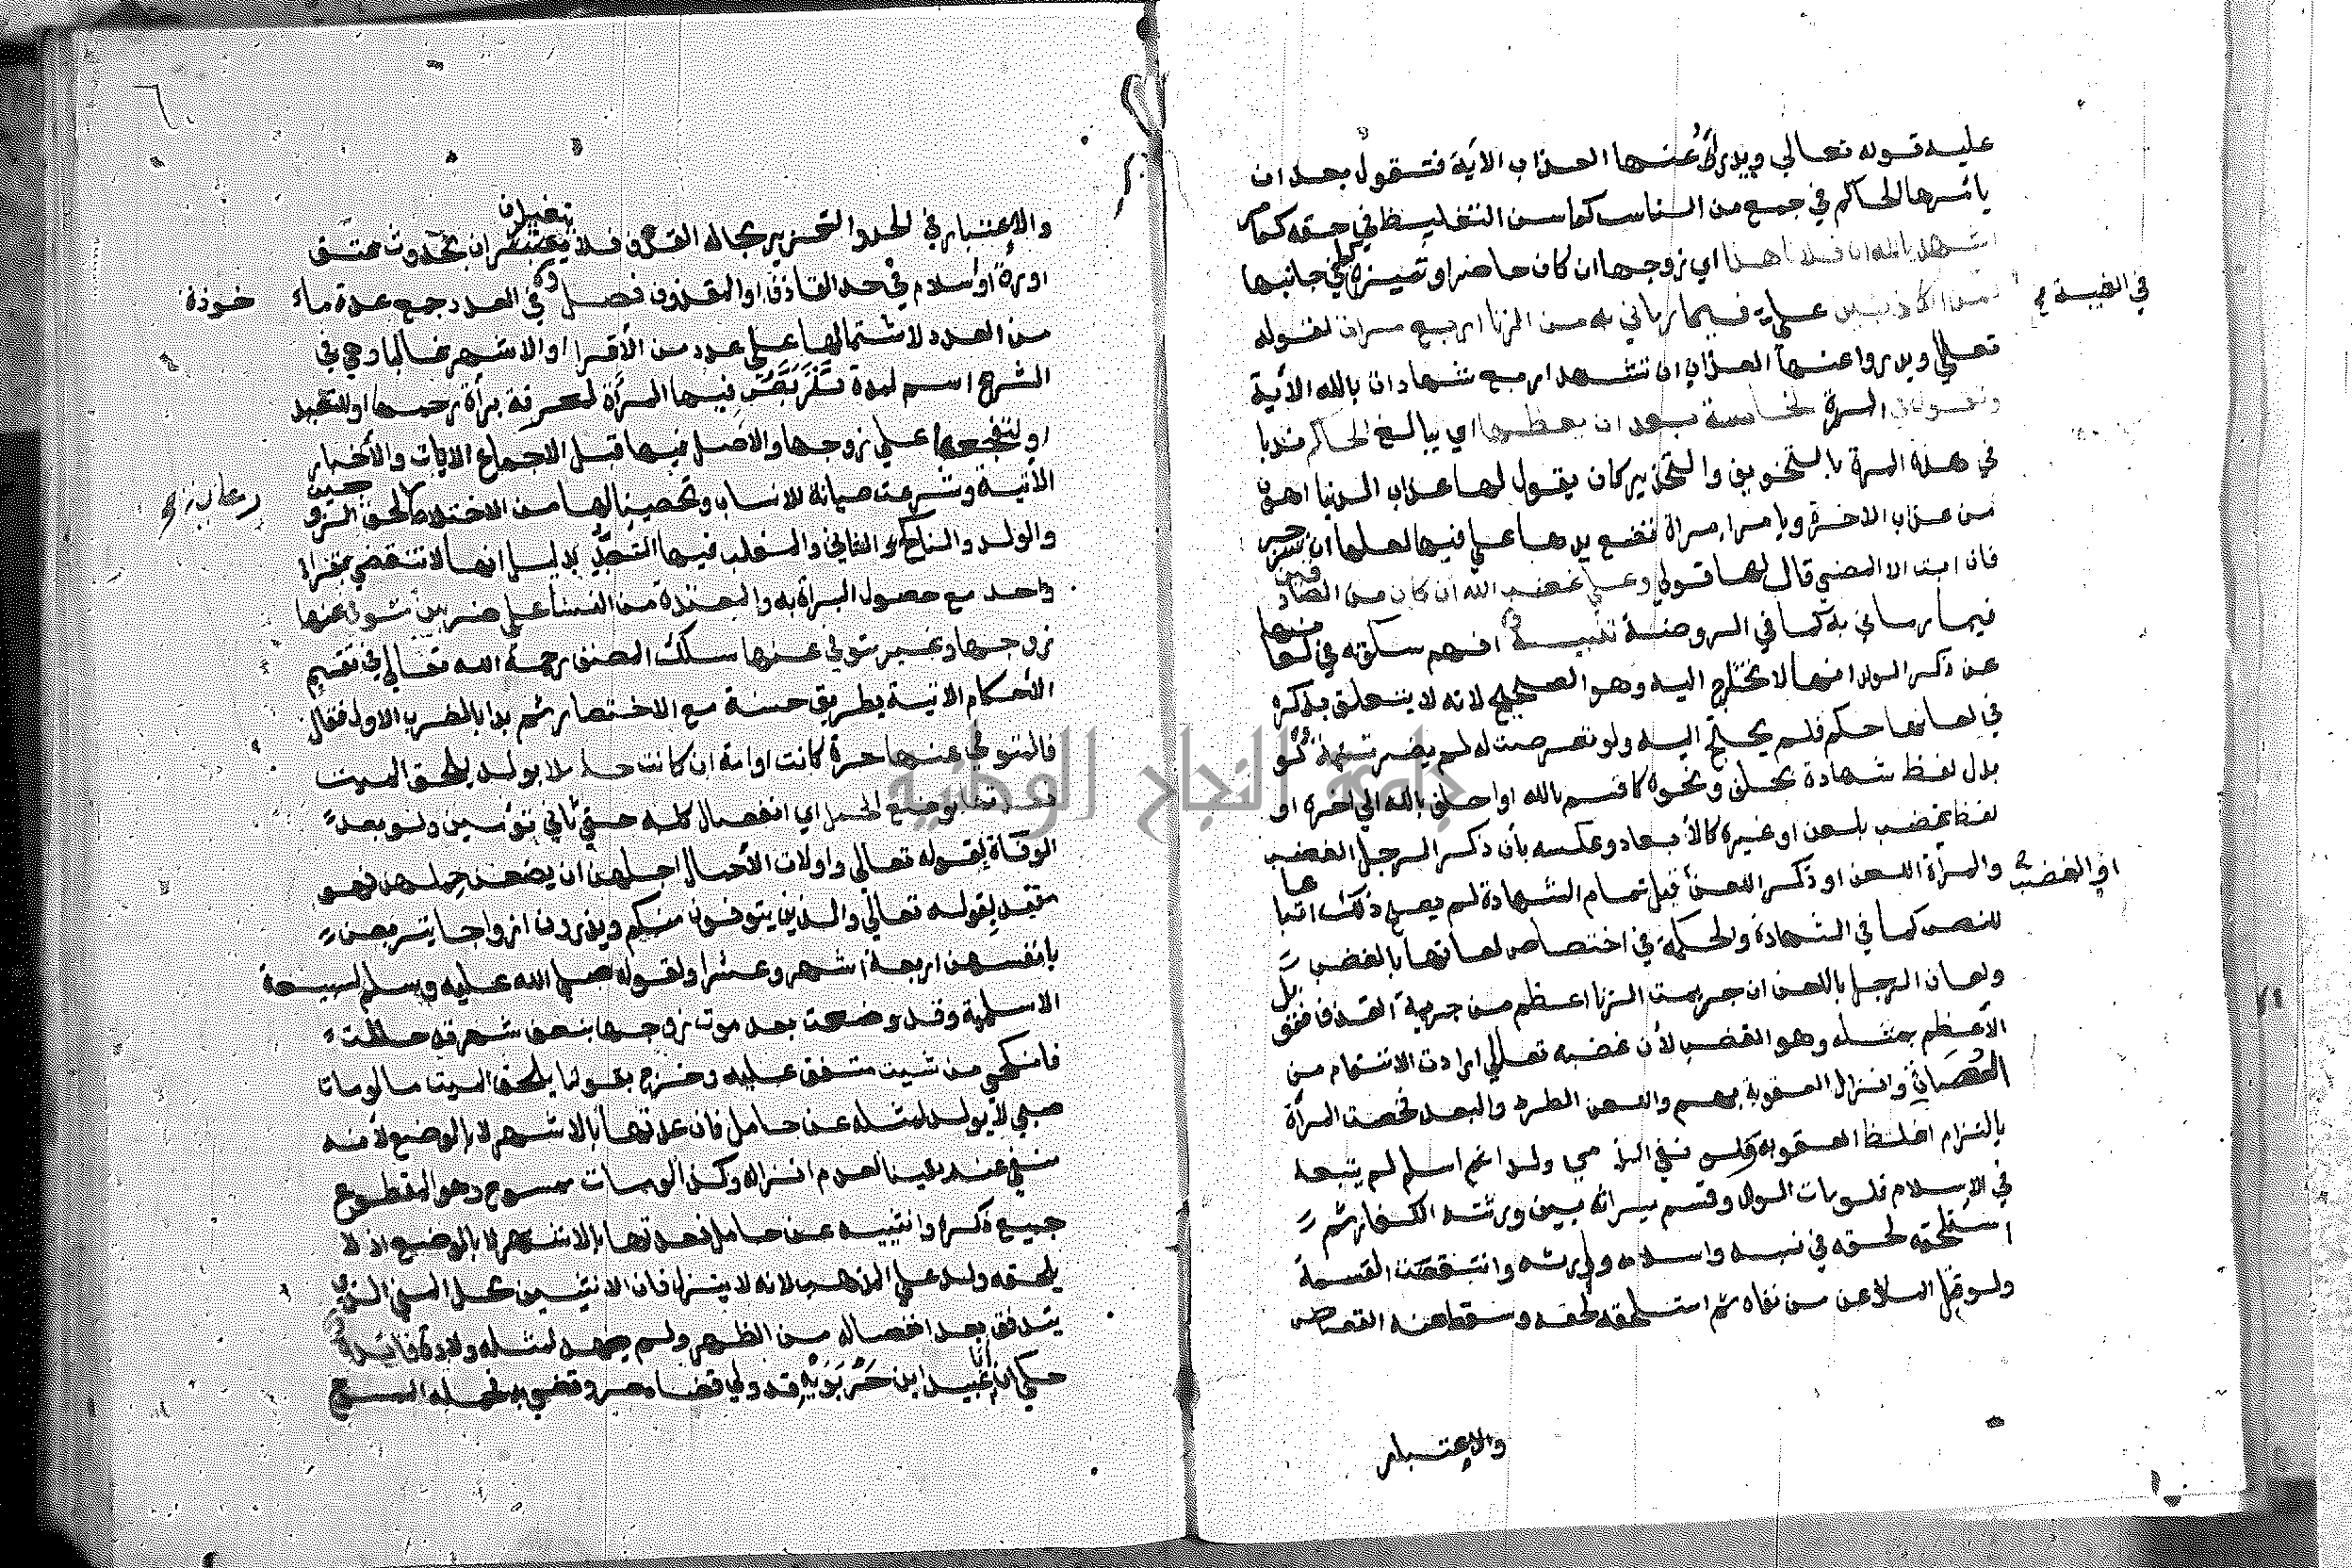 عليه قوله تعالي ويدرؤ عنها العذاب الاية فتقول بعد ان
يأمرها الحاكم في جمع من الناس كما سن التغليظ في حقه كما مر
اشهد بالله ان فلانا هذا اي زوجها ان كان حاضرا وتميزه كما في جانبها
في الغيبة
لمن الكاذبين علي فيما رماني به من الزنا اربع مرات لقوله
تعالي ويدروا عنها العذاب ان تشهد اربع شهادات بالله الاية
وتقول في المرة الخامسة بعد ان يعظها اي يبالغ الحاكم ندبا
في هذه المرة بالتخويف والتحذير كان يقول لها عذاب الدنيا اهون
من عذاب الاخرة ويامر امرأة تضع يدها علي فيها لعلها ان تنزجر
فان ابت الا المضي قال لها قولي وعلي غضب الله ان كان من الصادقين
فيما رماني به كما في الروضة تنبيه افهم سكوته في لعانها
عن ذكر الولد انها لا تحتاج اليه وهو الصحيح لانه لا يتعلق بذكره
في لعانها حكم فلم يحتج اليه ولو تعرضت له لم يضر تتمة لو
بدل لفظ شهادة بحلف ونحوه كاقسم بالله او احلف بالله الي اخره او
لفظ غضب بلعن او غيره كالأبعاد وعكسه بأن ذكر الرجل الغضب
والمرأة اللعن او ذكر اللعن قبل تمام الشهادة لم يصح ذلك اتباعا
او الغضب
للنص كما في الشهادة والحكمة في اختصاص لعانها بالغضب
ولعان الرجل باللعن ان جريمت الزنا اعظم من جريمة القذف فقوبل
الأعظم بمثله وهو الغضب لأن غضبه تعالي ارادت الانتقام من
العصاة وانزال العقوبة بهم واللعن الطرد والبعد فخصت المرأة
بالتزام اغلظ العقوبة ولو نفي الذمي ولدا ثم اسلم لم يتبعه
في الاسلام فلو مات الولد وقسم ميراثه بين ورثته الكفار ثم
استلحقه لحقه في نسبه واسلامه وورثه وانتقضت القسمة
ولو قتل الملاعن من نفاه ثم استلحقه لحقه وسقط عنه القصاص
والاعتبار
والاعتبار في الحد والتعزير بحالة القذف فلا يتغيران بحدوث عتق
اورق او اسلام في حد القاذف او المقذوف فصل في العدد جمع عدة
خوذة
من العدد لاشتمالها علي عدد من الأقرا او الاشهر غالبا وهي في
الشرع اسم لمدة تتربص فيها المرأة لمعرفة برأة رحمها او للتعبد
او لتفجعها علي زوجها والاصل فيها قبل الاجماع الايات والأخبار
الأتية وشرعت صيانة للانساب وتحصينا لها من الاختلاط لحق الزوجين
والولد والناكح الثاني والمغلب فيها التعبد بدليل انها لا تنقضي بقراء
واحد مع حصول البرأة به والمعتدة من النسا علي ضربين متوفى عنها
زوجها وغير متوفي عنها سلك المصنف رحمة الله تعالي في تقسيم
الأحكام الاتية بطريق حسنة مع الاختصار ثم بدا بالضرب الاول فقال
فالمتوفي عنها حرة كانت او امة ان كانت حاملا بولد يلحق الميت
فعدتها بوضع الحمل اي انفصال كله حتي ثاني توأمين ولو بعد
الوفاة لقوله تعالي واولات الأحمال اجلهن ان يضعن حملهن فهو
مقيد لقوله تعالي والذين يتوفون منكم ويذرون ازواجا يتربصن
بانفسهن اربعة اشهر وعشرا ولقوله صلي الله عليه وسلم لسبيعة
الاسلمية وقد وضعت بعد موت زوجها بنصف شهر قد حللت
فانكحي من شيت متفق عليه وخرج بقولنا يلحق الميت ما لو مات
صبي لا يولد لمثله عن حامل فان عدتها بالاشهر لا بالوضع لأنه
منفي عنه يقينا لعدم انزاله وكذا لو مات ممسوح وهو المقطوع
جميع ذكره وانثييه عن حامل فعدتها بالاشهر لا بالوضع اذ لا
يلحقه ولد علي المذهب لانه لا ينزل فان الانثيين محل المني الذي
يتدفق بعد انفصاله من الظهر ولم يعهد لمثله ولادة فائدة
حكي ان ابا عبيد ابن حربويه قد ولي قضا مصر وقضي به فحمله الممسوح